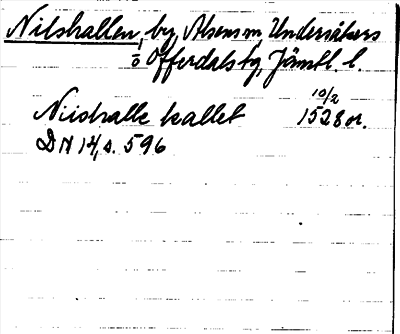 Nilshallen, by, Alsens sn, Undersåkers
o Offerdals tg, Jämtl. l.
Niishalle kallet 10/2 1528 or.
DN 14, s. 596